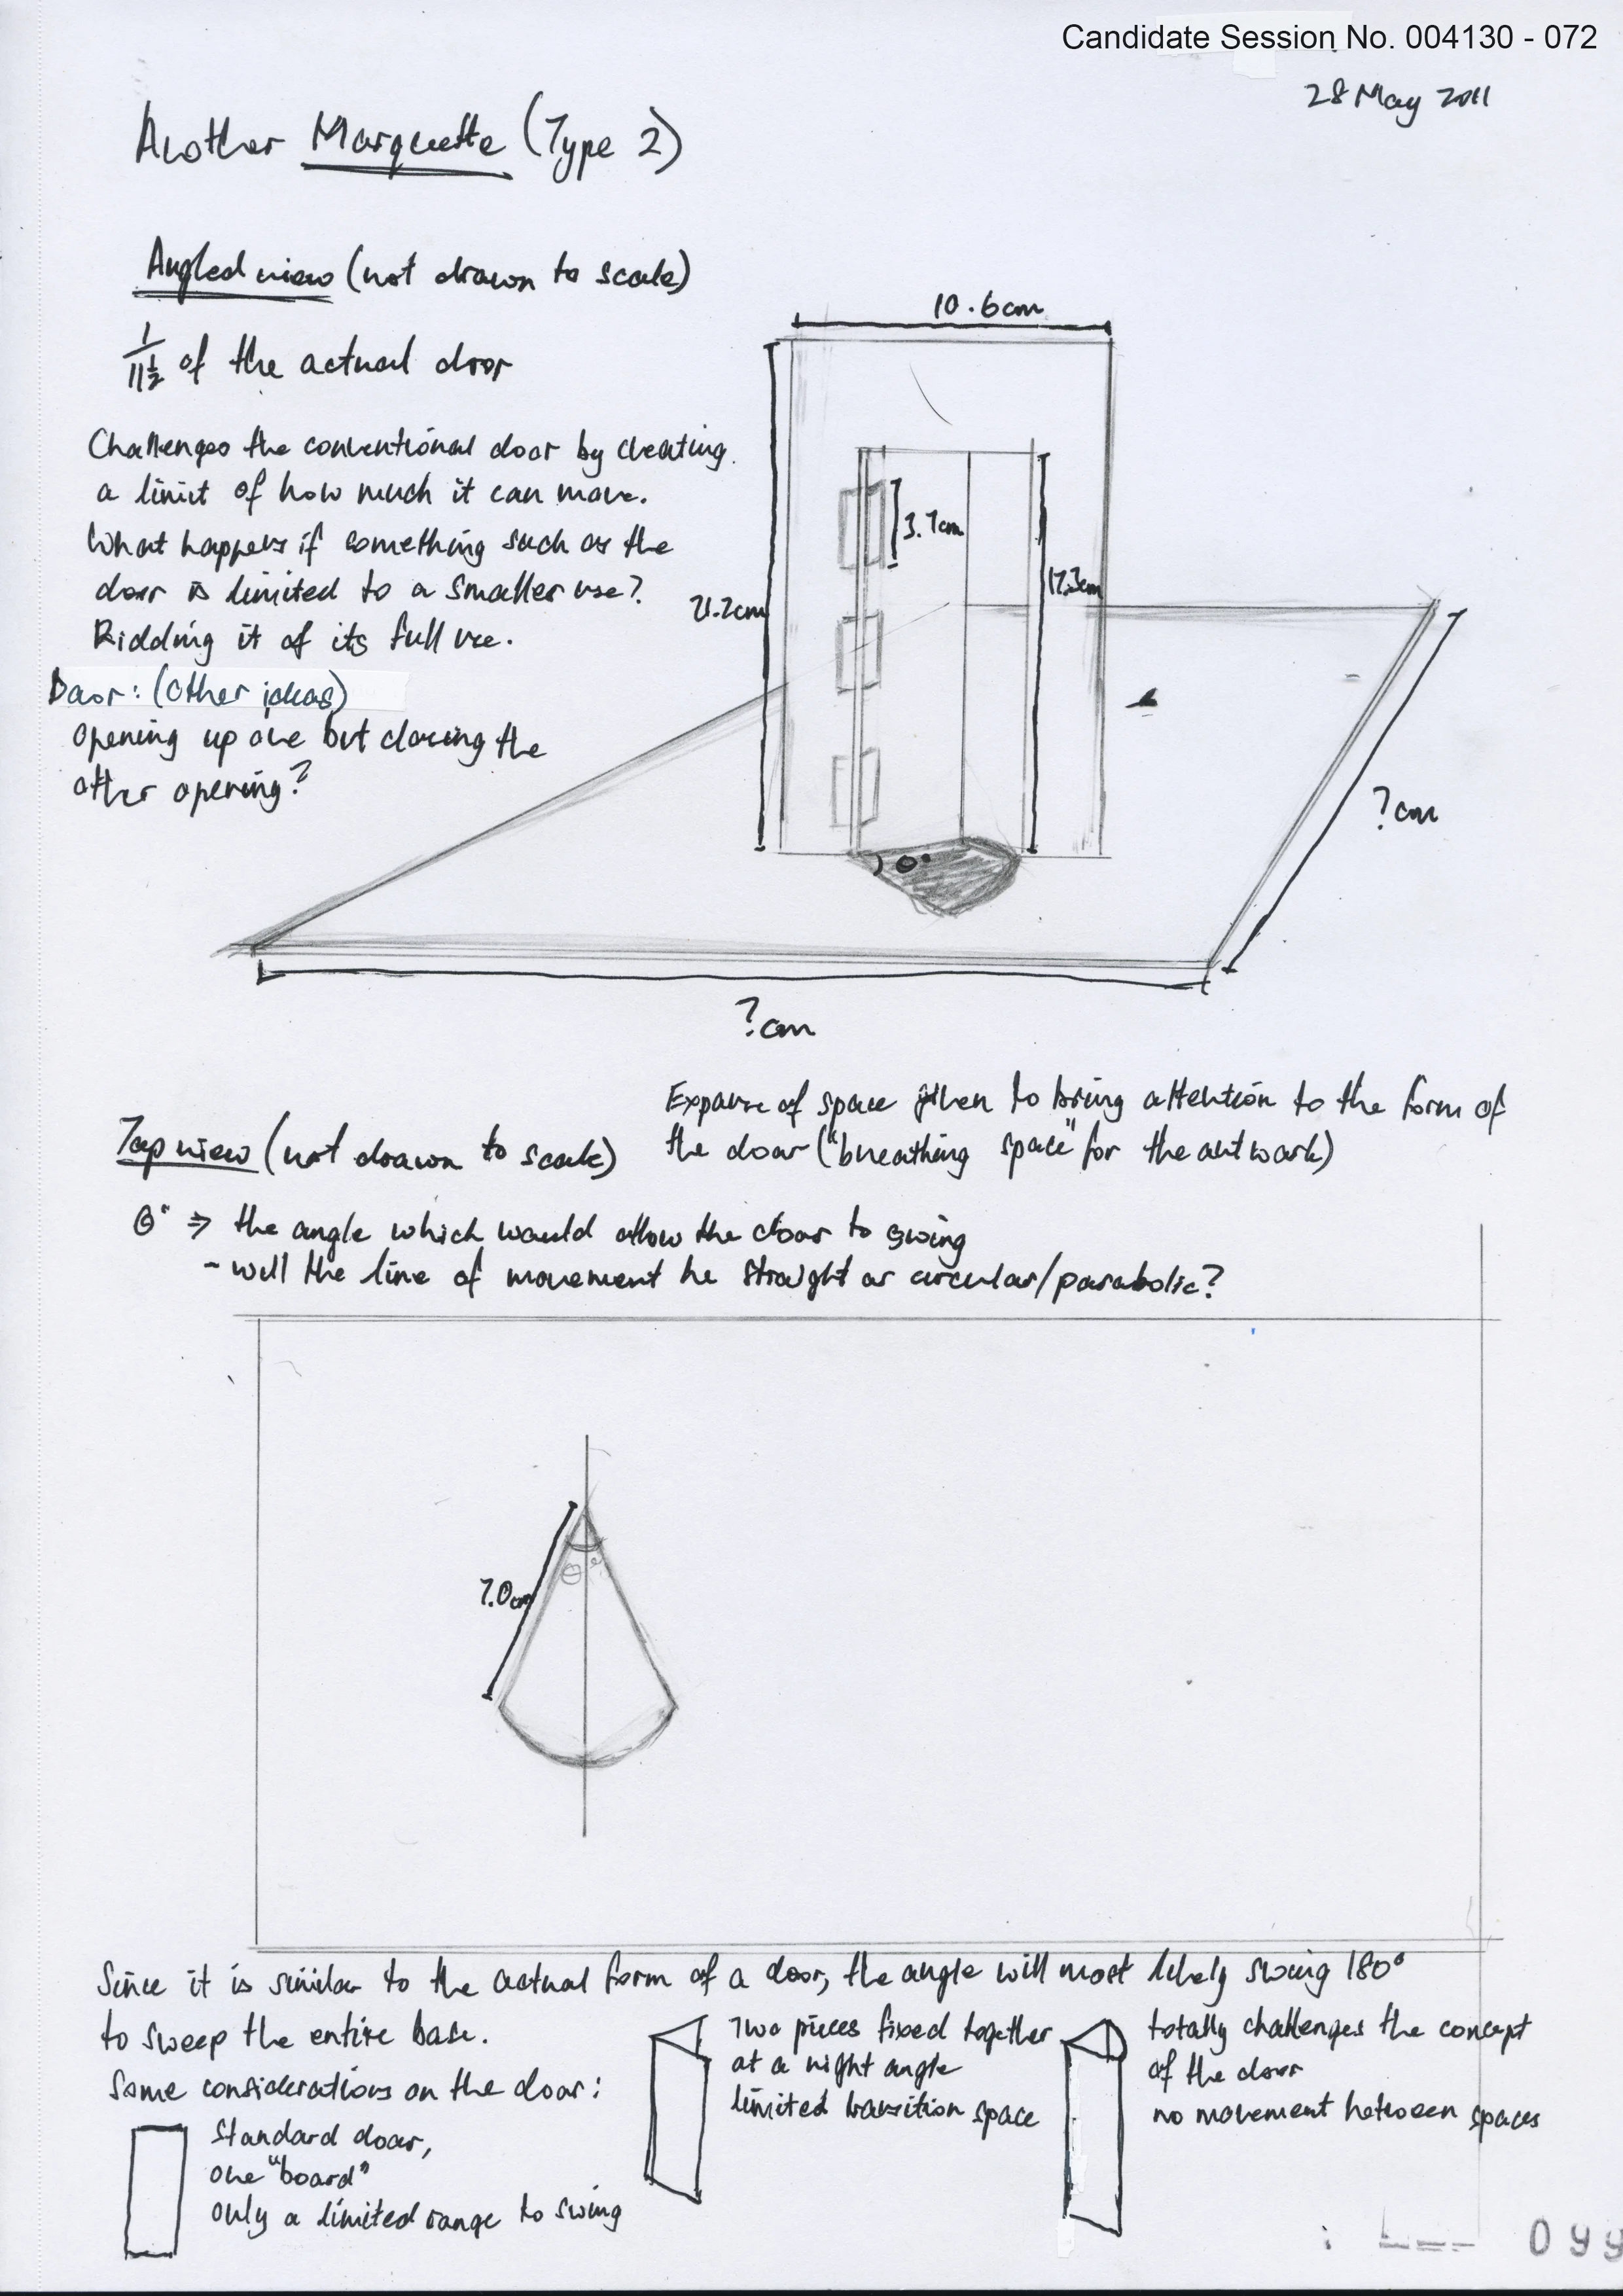 Candidate Session No. 004130 - 072
28 May 2011
Another Marquette (Type 2)
Angled view (not drawn to scale)
1/11½ of the actual door
Challenges the conventional door by creating
a limit of how much it can move.
What happens if something such as the
door is limited to a smaller use?
Ridding it of its full use.
Door: (Other ideas)
opening up one but closing the
other opening?
10.6cm
21.2cm
3.7cm
17.3cm
θ°
?cm
?cm
Expanse of space given to bring attention to the form of
the door ("breathing space" for the artwork)
Top view (not drawn to scale)
θ° ⇒ the angle which would allow the door to swing
- will the line of movement be straight or circular/parabolic?
7.0cm
θ°
Since it is similar to the actual form of a door, the angle will most likely swing 180°
to sweep the entire base.
Some considerations on the door:
Standard door,
one "board"
only a limited range to swing
Two pieces fixed together
at a right angle
limited transition space
totally challenges the concept
of the door
no movement between spaces